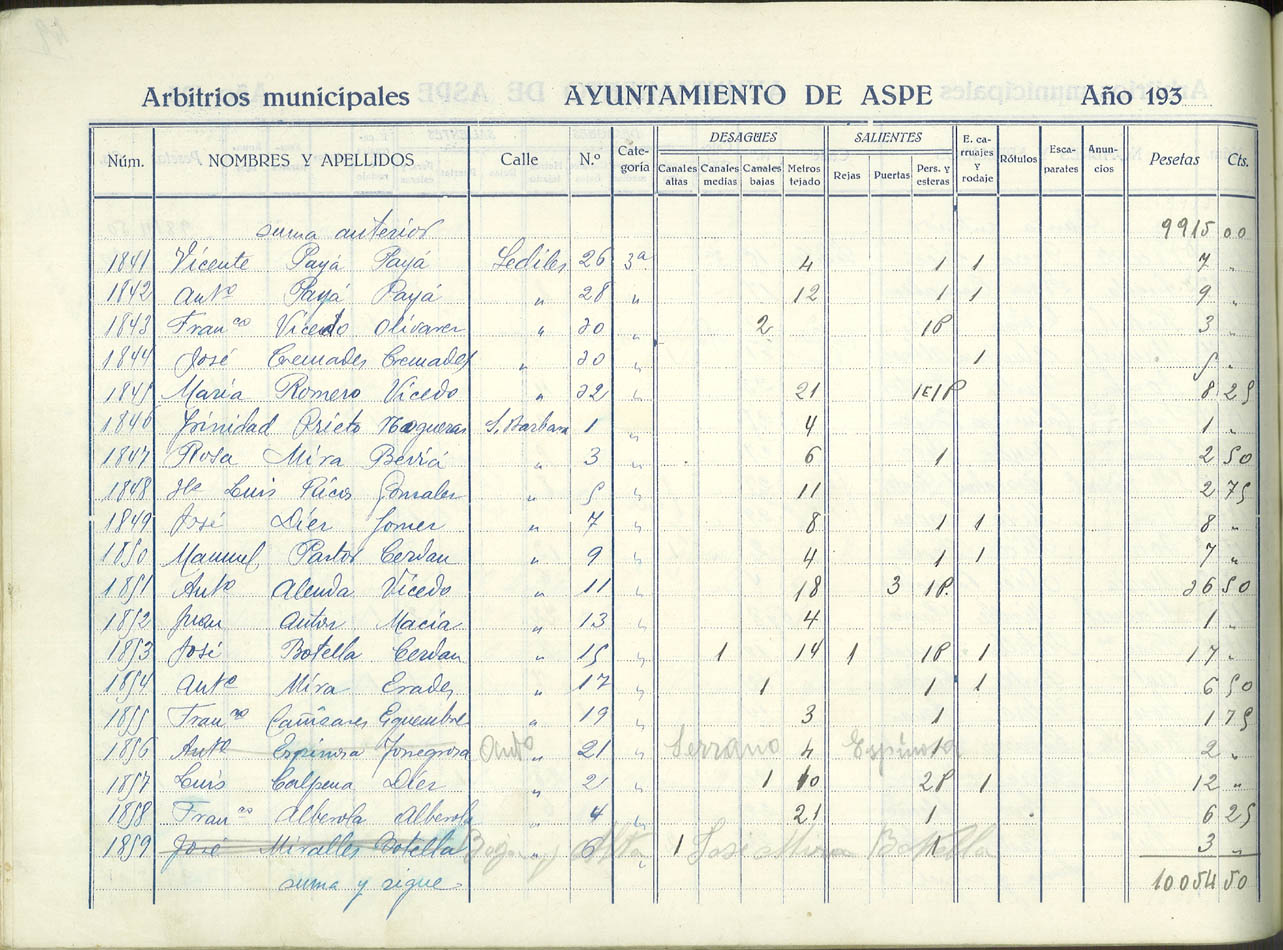 Arbitrios municipales AYUNTAMIENTO DE ASPE Año 193
Núm. NOMBRES Y APELLIDOS Calle N.º Categoría DESAGÜES Canales altas Canales medias Canales bajas Metros tejado SALIENTES Rejas Puertas Pers. y esteras E. carruajes y rodaje Rótulos Escaparates Anuncios Pesetas Cts.
suma anterior 9915 00
1841 Vicente Payá Payá Lediles 26 3ª 4 1 1 7 "
1842 Antº Payá Payá " 28 " 12 1 1 9 "
1843 Franco Vicedo Olivares " 30 " 2 1P 3 "
1844 José Cremades Cremades " 30 " 1 5 "
1845 María Romero Vicedo " 32 " 21 1E1P 8 25
1846 Trinidad Prieto Nogueras S. Barbara 1 " 4 1 "
1847 Rosa Mira Beviá " 3 " 6 1 2 50
1848 Luis Ricos Gonzalez " 5 " 11 2 75
1849 José Díez Gomez " 7 " 8 1 1 8 "
1850 Manuel Pastor Cerdan " 9 " 4 1 1 7 "
1851 Antº Alenda Vicedo " 11 " 18 3 1P. 26 50
1852 Juan Autor Macía " 13 " 4 1 "
1853 José Botella Cerdan " 15 " 1 14 1 1P 1 17 "
1854 Antº Mira Erades " 17 " 1 1 1 6 50
1855 Franco Cañizares Eguembre " 19 " 3 1 1 75
1856 Antº Espinosa Torregrosa Antº " 21 " Serrano 4 Espinosa 1 2 "
1857 Luis Calpena Díez " 21 " 1 10 2P 1 12 "
1858 Franco Alberola Alberola " 4 " 21 1 6 25
1859 José Miralles Botella Baja y Alta " 6 " 1 José Mira Botella 1 3 "
suma y sigue 10054 50